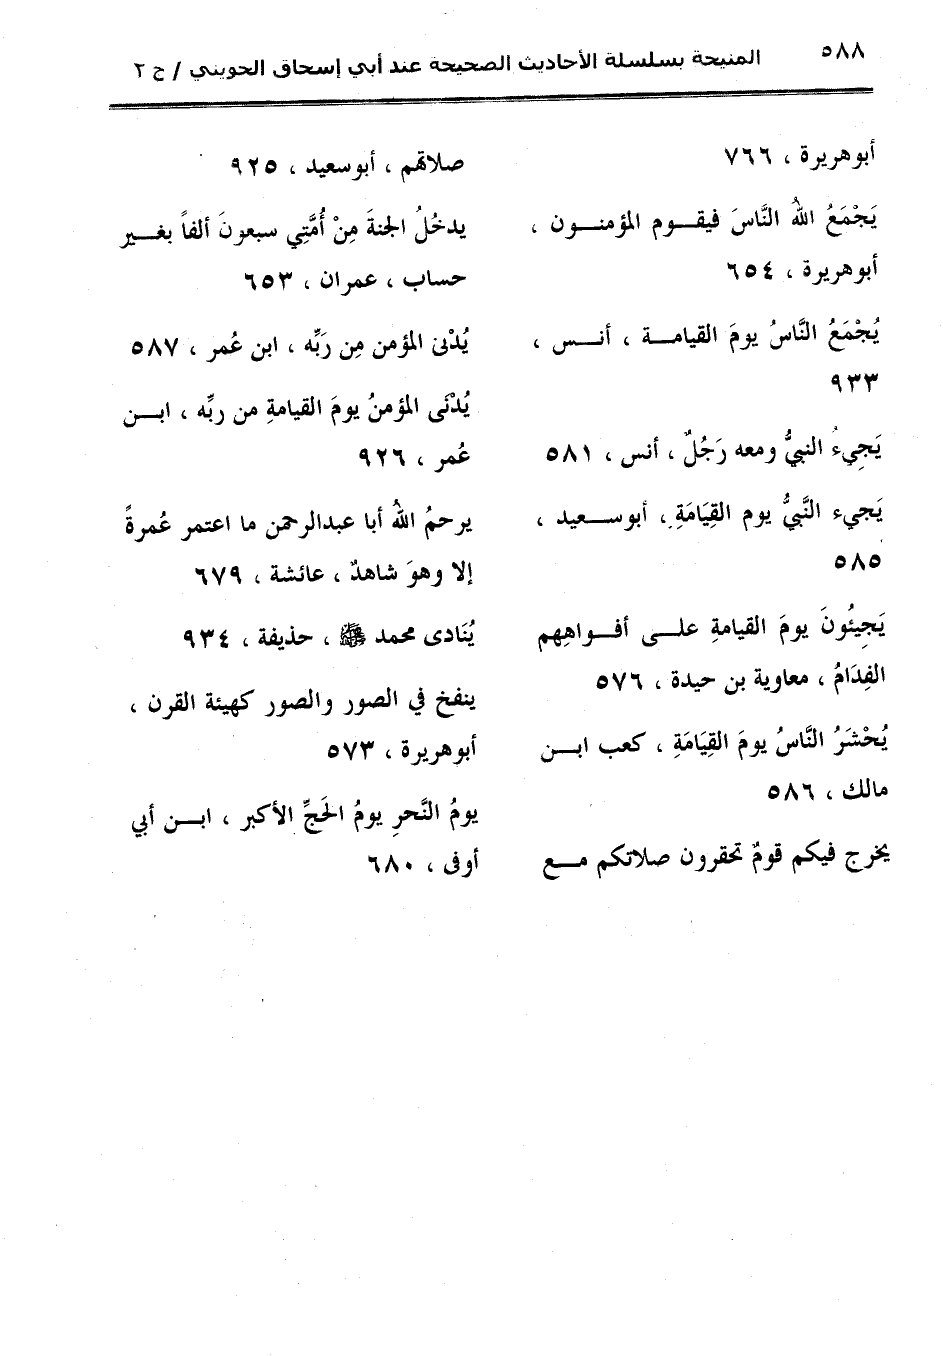 ٥٨٨
المنيحة بسلسلة الأحاديث الصحيحة عند أبي إسحاق الحويني / ج ٢
أبوهريرة ، ٧٦٦
يَجْمَعُ اللهُ النَّاسَ فيقـــوم المؤمنـــون ،
أبوهريرة ، ٦٥٤
يُجْمَعُ النَّاسُ يومَ القيامـــة ، أنـــس ،
٩٣٣
يَجِيءُ النبيُّ ومعه رَجُلٌ ، أنس ، ٥٨١
يَجيء النَّبيُّ يوم القِيَامَةِ ، أبوســـعيد ،
٥٨٥
يَجِيئُونَ يومَ القيامةِ علـــى أفـــواهِهم
الفِدَامُ ، معاوية بن حيدة ، ٥٧٦
يُحْشَرُ النَّاسُ يومَ القِيَامَةِ ، كعب ابـــن
مالك ، ٥٨٦
يخرج فيكم قومٌ تحقرون صلاتكم مـــع
صلاتهم ، أبوسعيد ، ٩٢٥
يدخُلُ الجنةَ مِنْ أُمَّتِي سبعونَ ألفاً بغـــير
حساب ، عمران ، ٦٥٣
يُدْنى المؤمن مِن رَبِّه ، ابن عُمر ، ٥٨٧
يُدْنَى المؤمنُ يومَ القيامةِ من ربِّه ، ابـــن
عُمر ، ٩٢٦
يرحمُ اللهُ أبا عبدالرحمن ما اعتمر عُمرةً
إلا وهوَ شاهدٌ ، عائشة ، ٦٧٩
يُنَادى محمد ﷺ ، حذيفة ، ٩٣٤
ينفخ في الصور والصور كهيئة القرن ،
أبوهريرة ، ٥٧٣
يومُ النَّحرِ يومُ الحَجِّ الأكبر ، ابـــن أبي
أوفى ، ٦٨٠